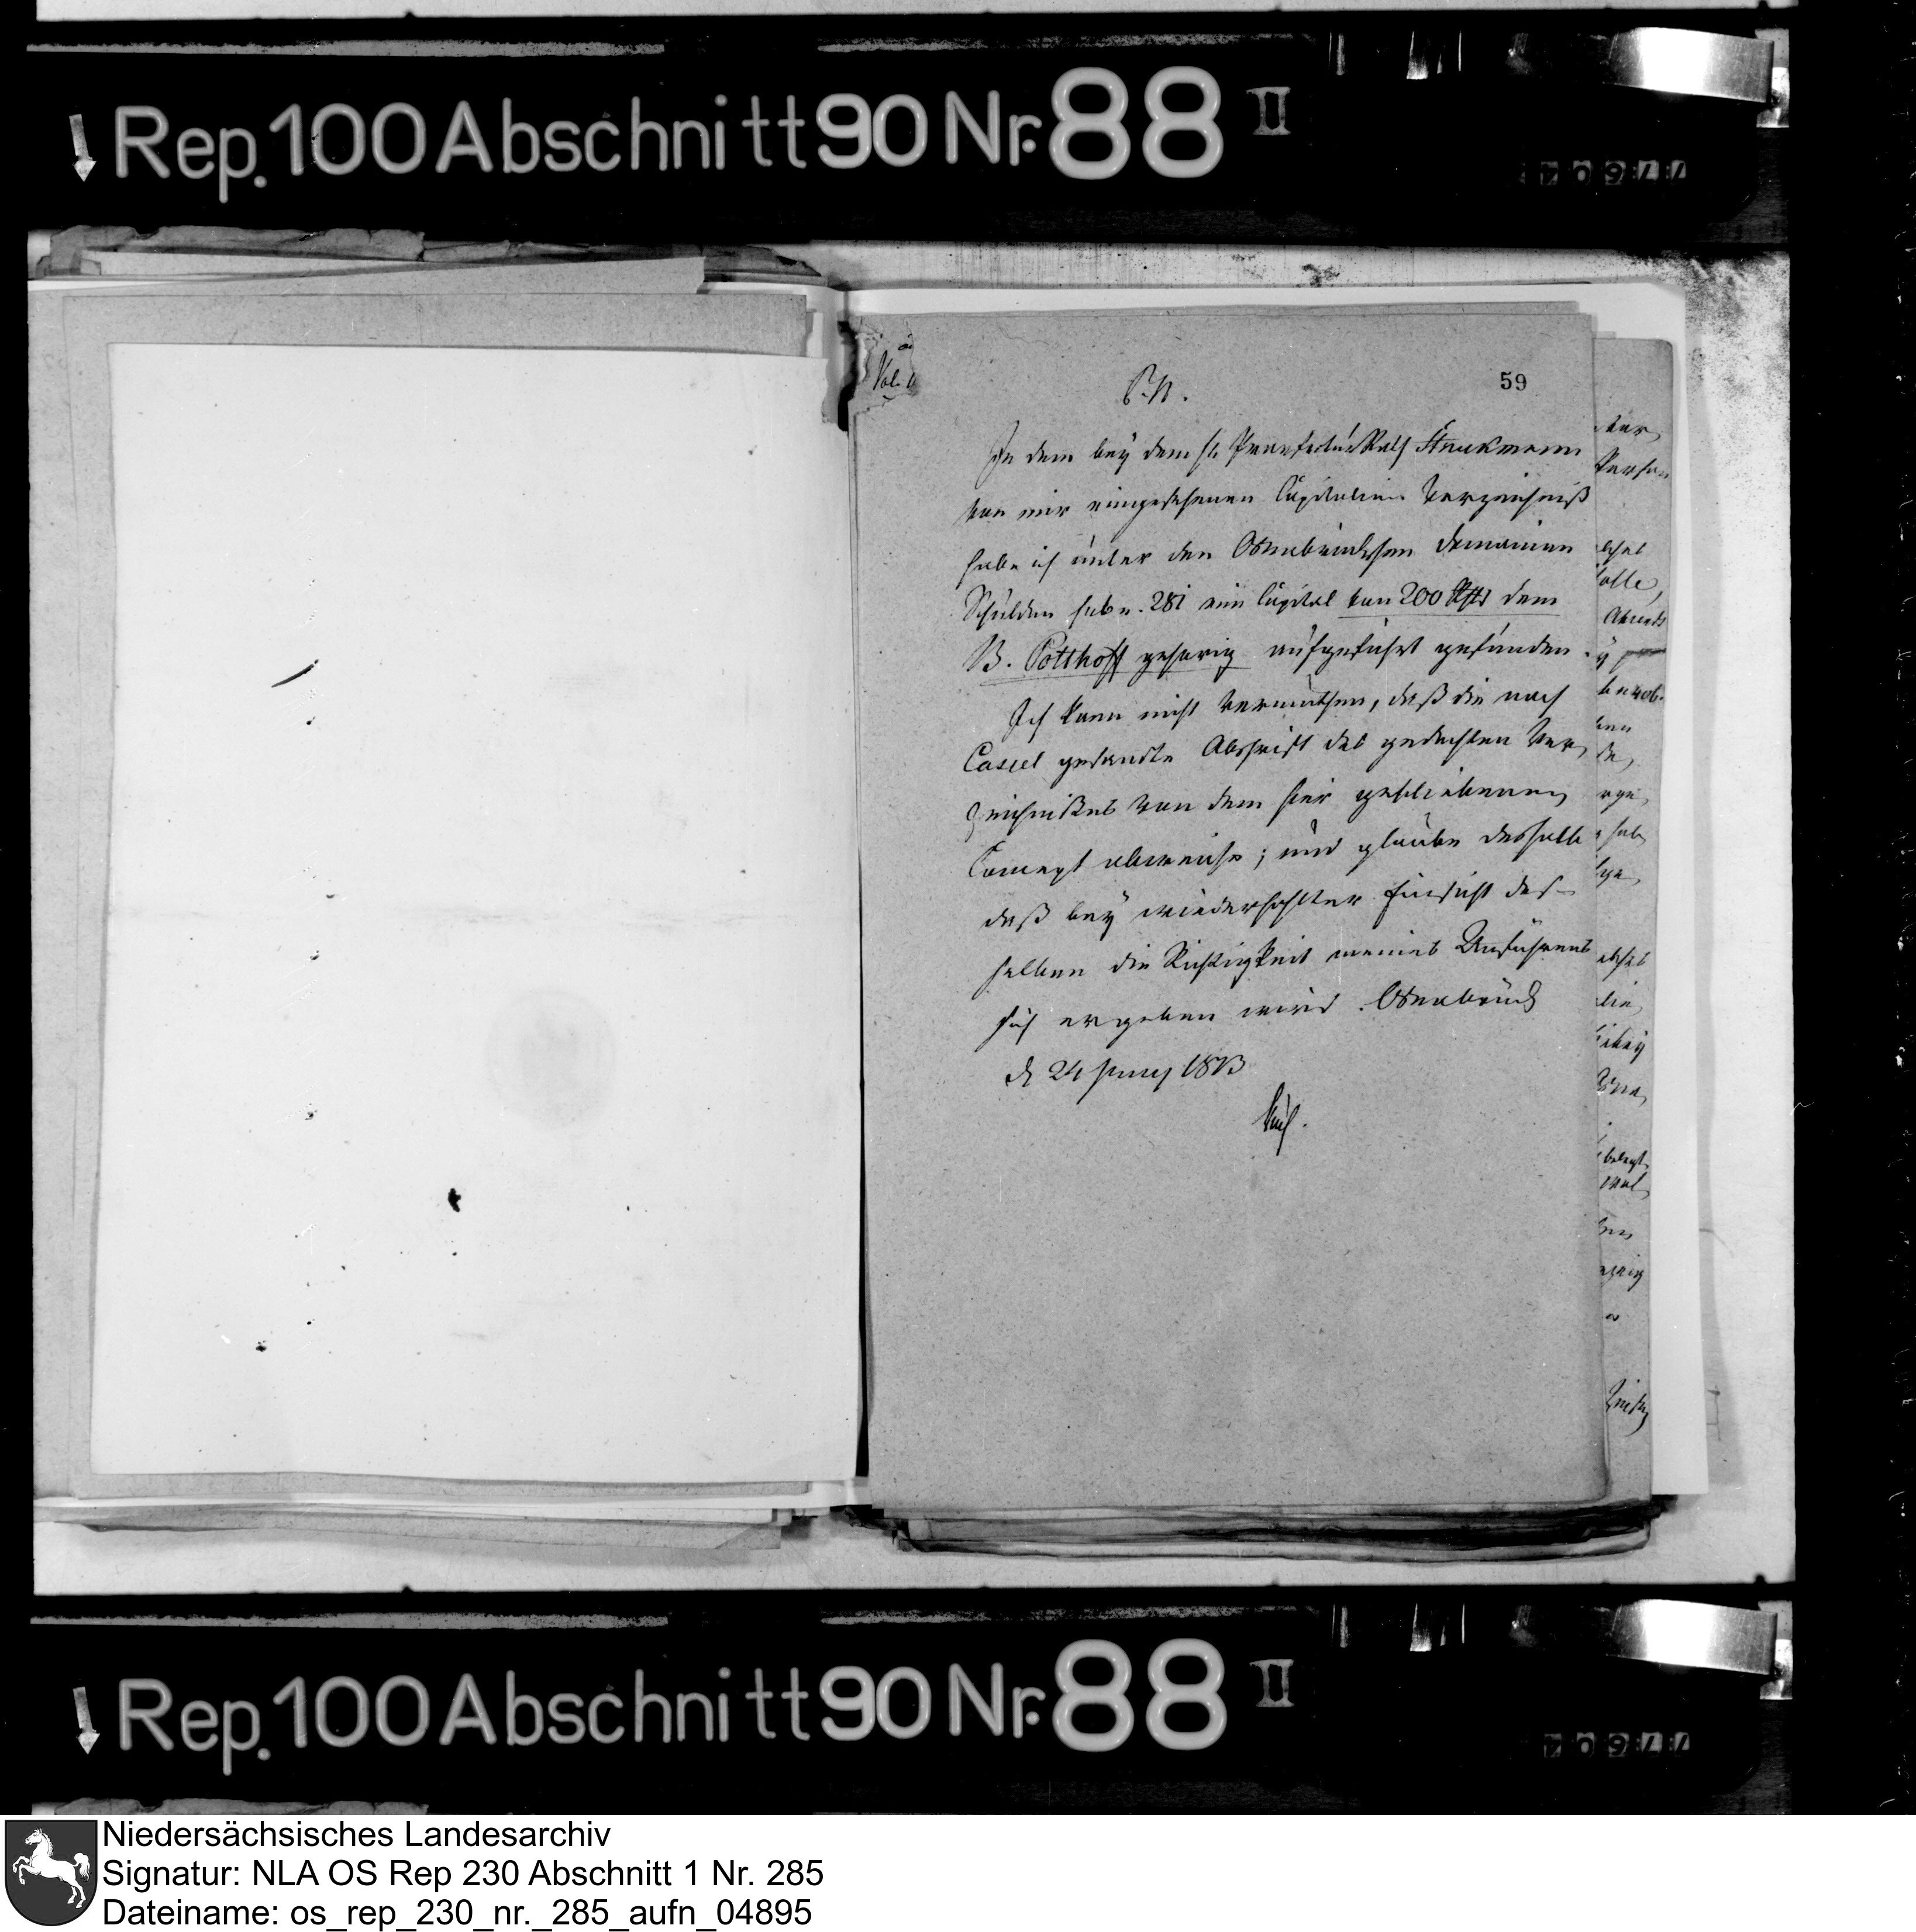 Rep. 100 Abschnitt 90 Nr. 88 II
77604
Vol. 
P. N.
59
In dem bey dem H. Praefectur Rath Struckmann
von mir eingesehenen Capitalien Verzeichniß
habe ich unter den Osnabrückschen Domainen
Schulden sub n. 281 ein Capital von 200 Rthlr dem
B. Potthoff gehörig aufgeführt gefunden.
Ich kann nicht vermuthen, daß die nach
Cassel gesandte Abschrift des gedachten Ver
zeichnißes von dem hier gebliebenen
Concept abweiche; und glaube deshalb
daß bey wiederhohlter Einsicht des-
selben die Richtigkeit meines Anführens
sich ergeben wird. Osnabrück
d 24 Juny 1813
Rep. 100 Abschnitt 90 Nr. 88 II
77604
Niedersächsisches Landesarchiv
Signatur: NLA OS Rep 230 Abschnitt 1 Nr. 285
Dateiname: os_rep_230_nr._285_aufn_04895